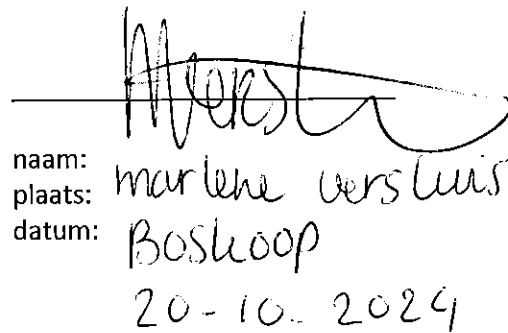 naam: marlene versluis
plaats: Boskoop
datum: 20-10-2024